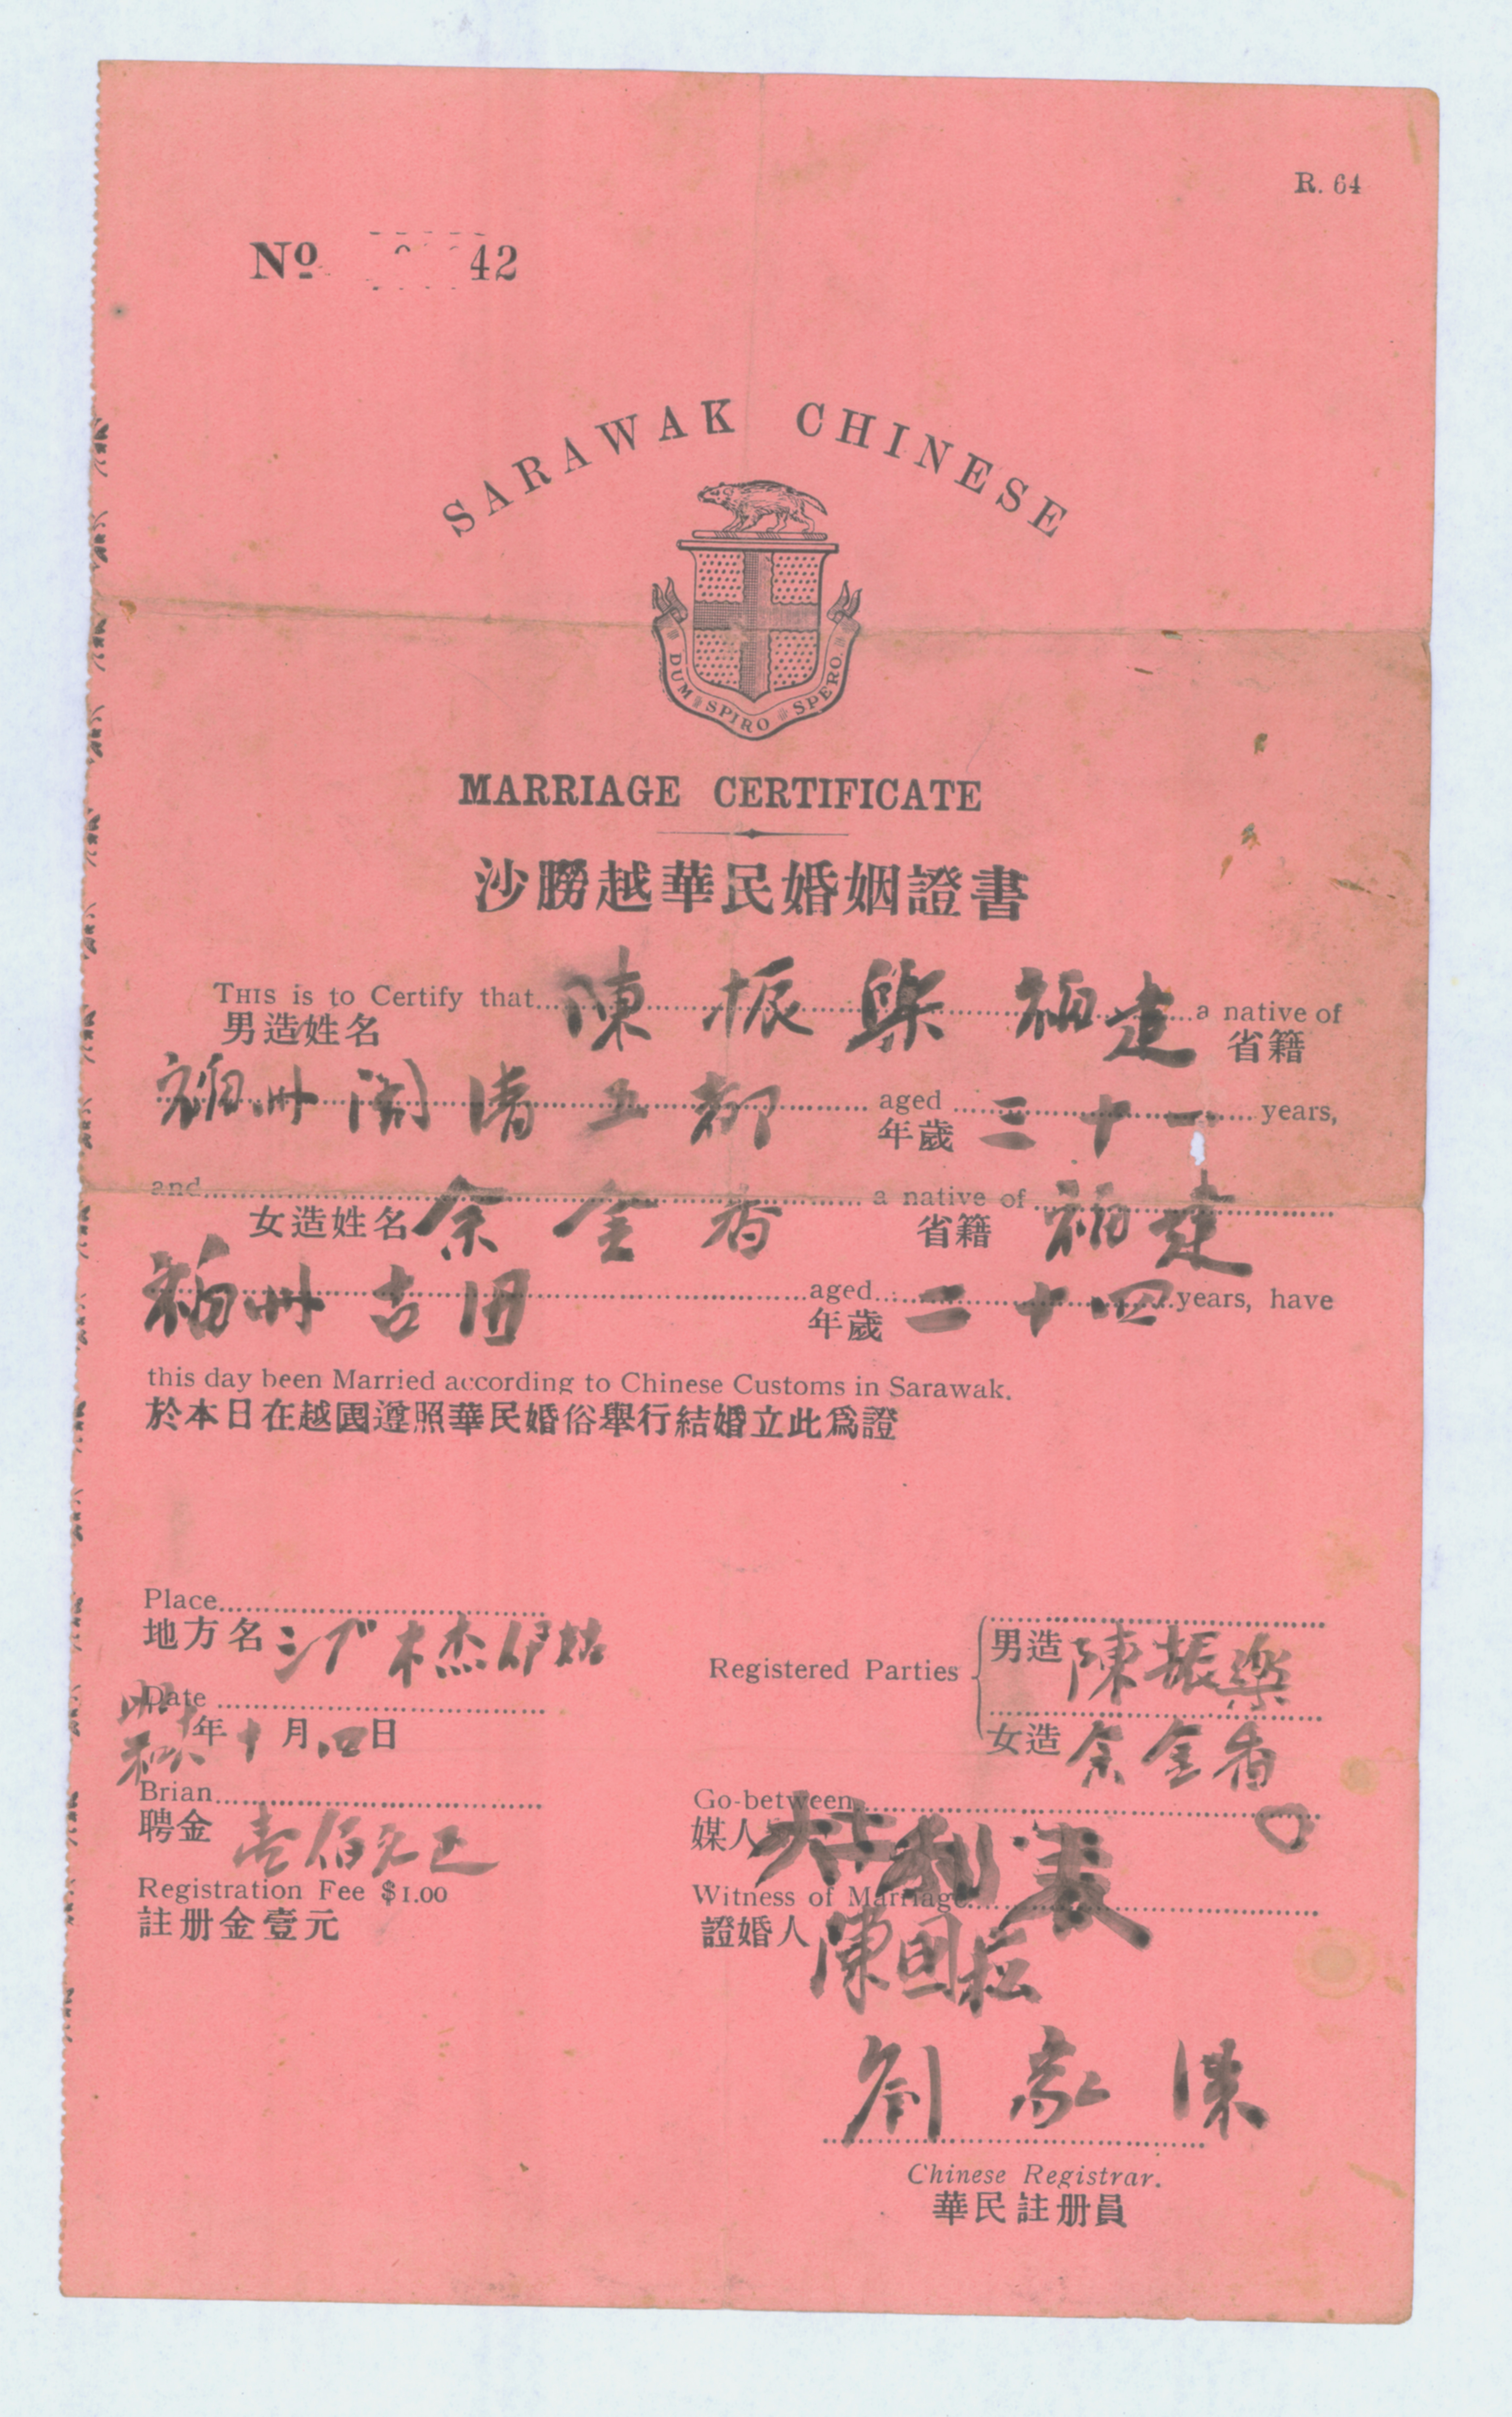 R. 64
No 42
SARAWAK CHINESE
DUM SPIRO SPERO
MARRIAGE CERTIFICATE
沙朥越華民婚姻證書
THIS is to Certify that 陳振樂 福建 a native of
男造姓名 省籍
福州閩清五都 aged 三十一 years,
年歲
and a native of
女造姓名 余金香 省籍 福建
福州古田 aged 二十四 years, have
年歲
this day been Married according to Chinese Customs in Sarawak.
於本日在越國遵照華民婚俗舉行結婚立此爲證
Place
地方名
Registered Parties
男造 陳振樂
女造 余金香
Date
昭和 年十月四日
Brian
聘金 壹佰元正
Go-between
媒人
Registration Fee $1.00
註册金壹元
Witness of Marriage
證婚人 陳國
劉家
Chinese Registrar.
華民註册員